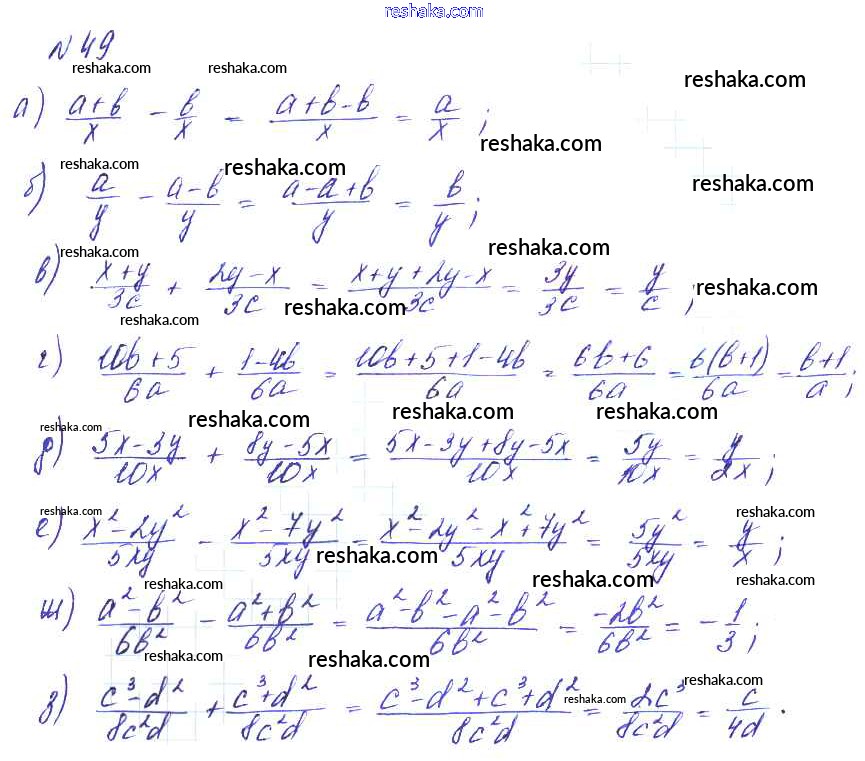 reshaka.com
№ 49
reshaka.com reshaka.com reshaka.com
а) (a+b)/x - b/x = (a+b-b)/x = a/x ;
reshaka.com reshaka.com reshaka.com reshaka.com
б) a/y - (a-b)/y = (a-a+b)/y = b/y ;
reshaka.com reshaka.com
в) (x+y)/3c + (2y-x)/3c = (x+y+2y-x)/3c = 3y/3c = y/c ;
reshaka.com reshaka.com reshaka.com
г) (10b+5)/6a + (1-4b)/6a = (10b+5+1-4b)/6a = (6b+6)/6a = 6(b+1)/6a = (b+1)/a ;
reshaka.com reshaka.com reshaka.com reshaka.com
д) (5x-3y)/10x + (8y-5x)/10x = (5x-3y+8y-5x)/10x = 5y/10x = y/2x ;
reshaka.com reshaka.com
е) (x²-2y²)/5xy - (x²-7y²)/5xy = (x²-2y²-x²+7y²)/5xy = 5y²/5xy = y/x ;
reshaka.com reshaka.com reshaka.com reshaka.com
ж) (a²-b²)/6b² - (a²+b²)/6b² = (a²-b²-a²-b²)/6b² = -2b²/6b² = -1/3 ;
reshaka.com reshaka.com reshaka.com
з) (c³-d²)/8c²d + (c³+d²)/8c²d = (c³-d²+c³+d²)/8c²d = 2c³/8c²d = c/4d .
reshaka.com